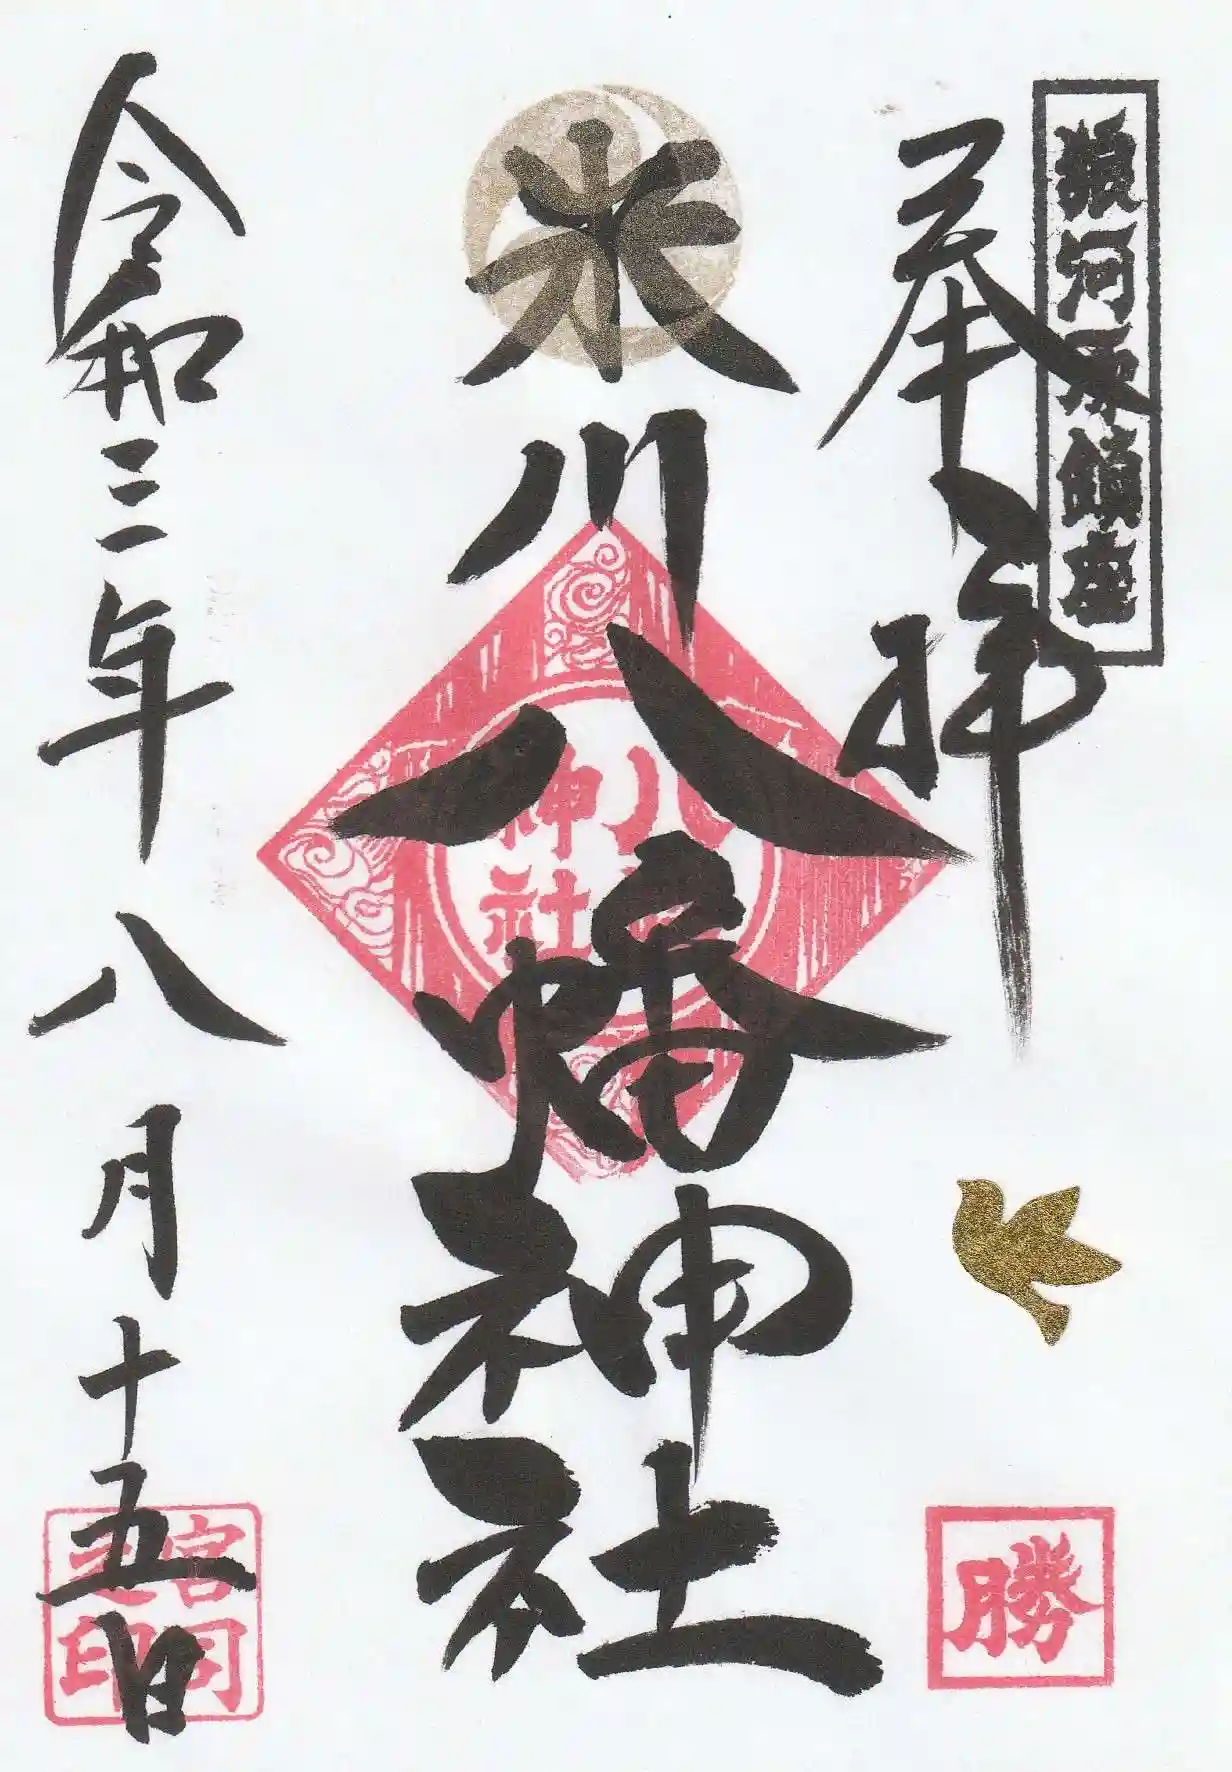 狼河原鎮座
奉拝
勝
米川八幡神社
八幡
神社
令和三年八月十五日
宮司
之印